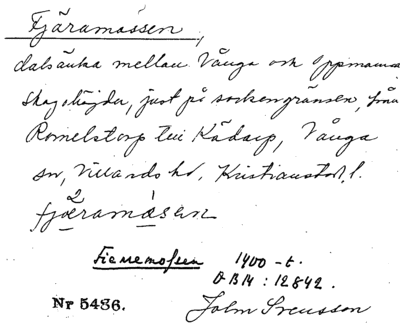 Fjäramossen,
dalsänka mellan Vånga och Oppmanna
skogshöjder, just på sockengränsen, från
Romelstorp till Kädarp, Vånga
sn, Villands hd, Kristianstad l.
fjæramåsen
Fieremossen 1700-t.
ÖBM: 12842.
Nr 5436. John Svensson